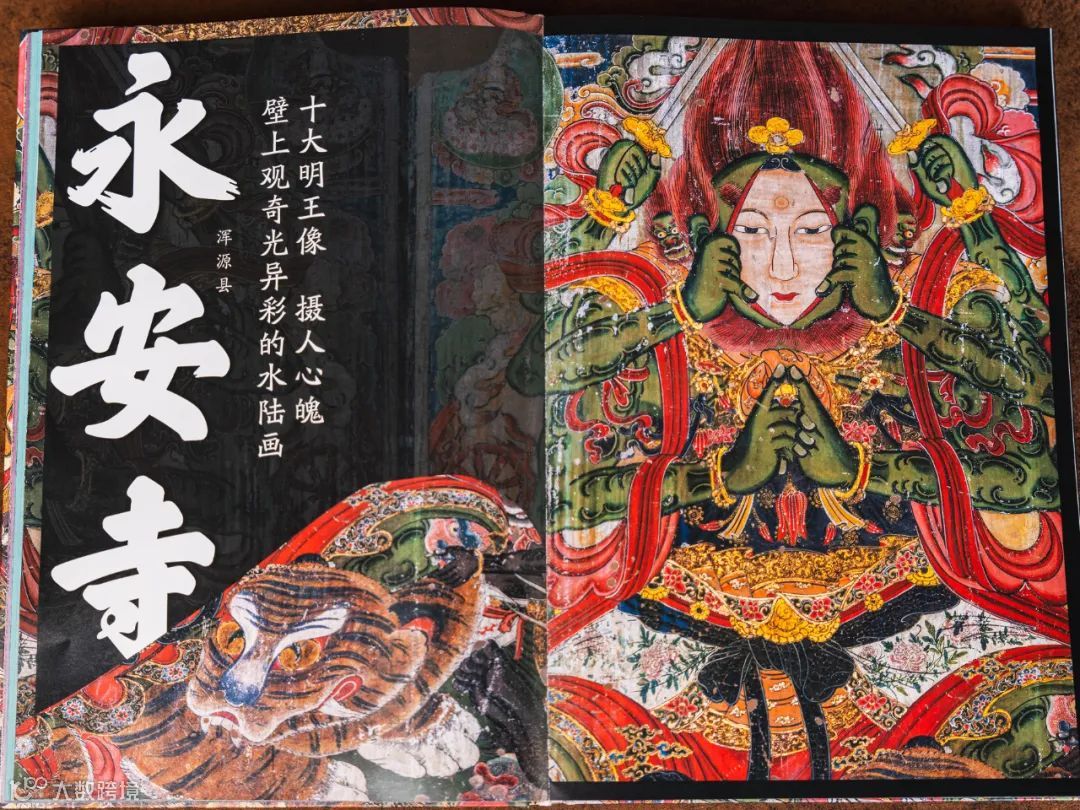 永安寺
浑源县
十大明王像 摄人心魄
壁上观奇光异彩的水陆画
大数跨境